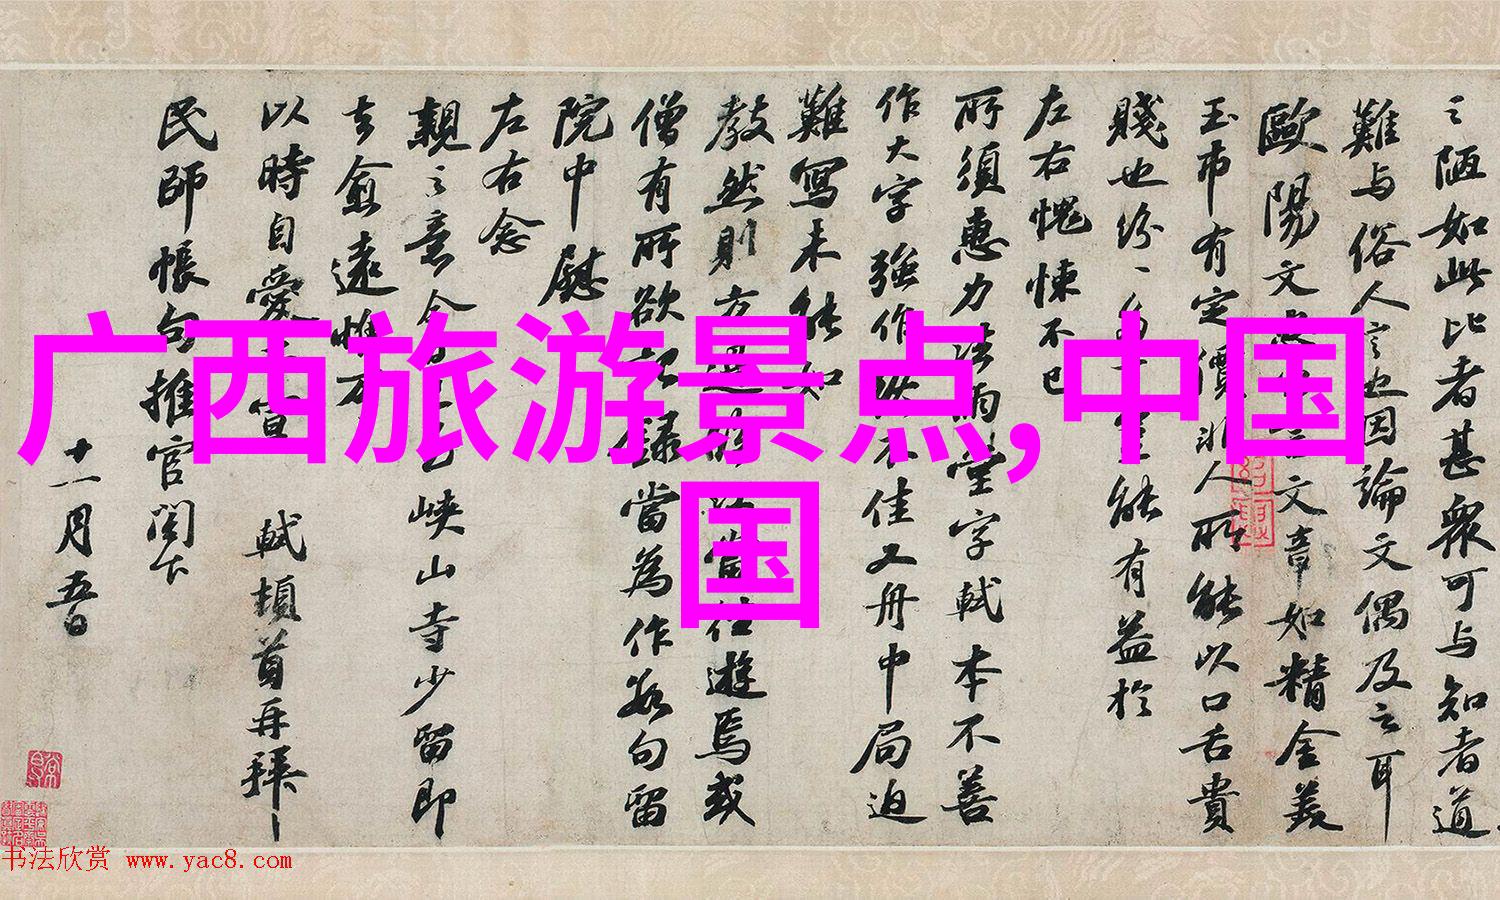 广西旅游景点,中国
国
之陋如此比者甚眾可与知者道
難与俗人言也因論文偶及之耳
歐陽文忠公言文章如精金美
玉市有定價非人所能以口舌貴
賤也紛、多言豈能有益於
左右愧悚不已
所須惠力法雨堂字軾本不善
作大字強作終不佳又舟中局迫
難寫未能如
教然則方過當往遊焉或
僧有所欲記錄當為作數句留
院中慰
左右念
親之意今日已峽山寺少留即
去愈遠惟万
以時自愛不宣 軾頓首再拜
民師帳句推官閣下
十一月五日
书法欣赏 www.yac8.com